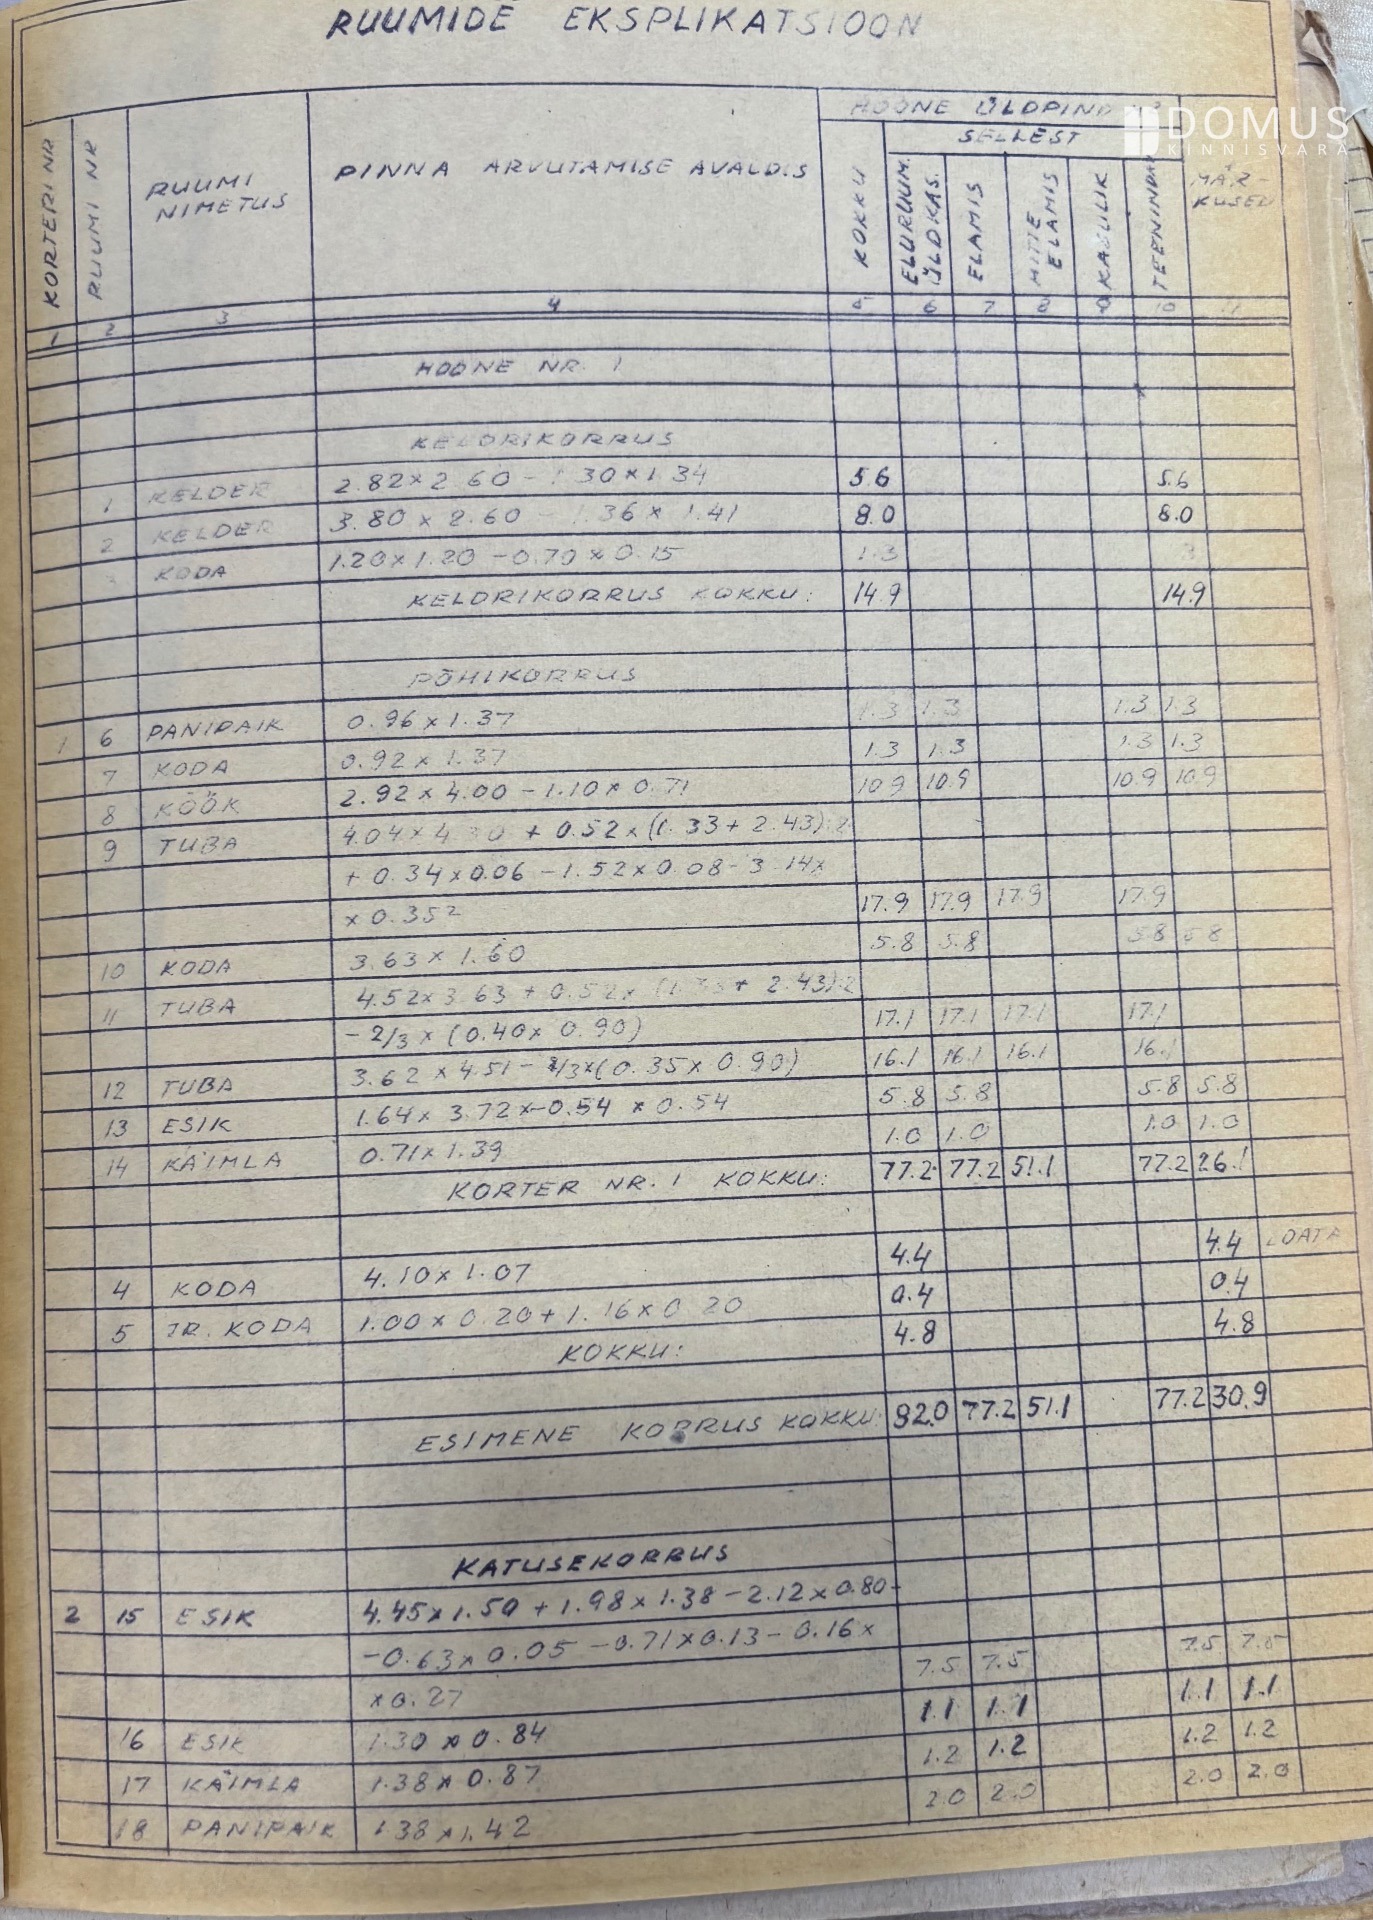 RUUMIDE EKSPLIKATSIOON
DOMUS
KINNISVARA
KORTERI NR
RUUMI NR
RUUMI NIMETUS
PINNA ARVUTAMISE AVALDIS
HOONE ÜLDPIND
SELLEST
KOKKU
ELURUUM. ÜLDKAS.
ELAMIS
MITTE ELAMIS
KASULIK
TEENINDAV
MÄR-
KUSED
1 2 3 4 5 6 7 8 9 10 11
HOONE NR. 1
KELDRIKORRUS
1 KELDER 2.82×2.60 - 1.30×1.34 5.6 5.6
2 KELDER 3.80 × 2.60 - 1.36 × 1.41 8.0 8.0
3 KODA 1.20×1.20 - 0.70×0.15 1.3 3
KELDRIKORRUS KOKKU: 14.9 14.9
PÕHIKORRUS
1 6 PANIPAIK 0.96×1.37 1.3 1.3 1.3 1.3
7 KODA 0.92×1.37 1.3 1.3 1.3 1.3
8 KÖÖK 2.92×4.00 - 1.10×0.71 10.9 10.9 10.9 10.9
9 TUBA 4.04×4.30 + 0.52×(1.33+2.43):2
+ 0.34×0.06 - 1.52×0.08 - 3.14×
×0.35² 17.9 17.9 17.9 17.9
10 KODA 3.63×1.60 5.8 5.8 5.8 5.8
11 TUBA 4.52×3.63 + 0.52× (1.33+ 2.43):2
- 2/3 × (0.40× 0.90) 17.1 17.1 17.1 17.1
12 TUBA 3.62 × 4.51 - 2/3×(0.35× 0.90) 16.1 16.1 16.1 16.1
13 ESIK 1.64× 3.72×-0.54 × 0.54 5.8 5.8 5.8 5.8
14 KÄIMLA 0.71×1.39 1.0 1.0 1.0 1.0
KORTER NR. 1 KOKKU: 77.2 77.2 51.1 77.2 26.1
4 KODA 4.10×1.07 4.4 4.4 LOATA
5 TR. KODA 1.00×0.20+1.16×0.20 0.4 0.4
KOKKU: 4.8 4.8
ESIMENE KORRUS KOKKU: 82.0 77.2 51.1 77.2 30.9
KATUSEKORRUS
2 15 ESIK 4.45×1.50 + 1.98×1.38 - 2.12×0.80-
-0.63×0.05 -0.71×0.13 - 0.16×
×0.27 7.5 7.5 7.5 7.5
16 ESIK 1.30×0.84 1.1 1.1 1.1 1.1
17 KÄIMLA 1.38×0.87 1.2 1.2 1.2 1.2
18 PANIPAIK 1.38×1.42 2.0 2.0 2.0 2.0